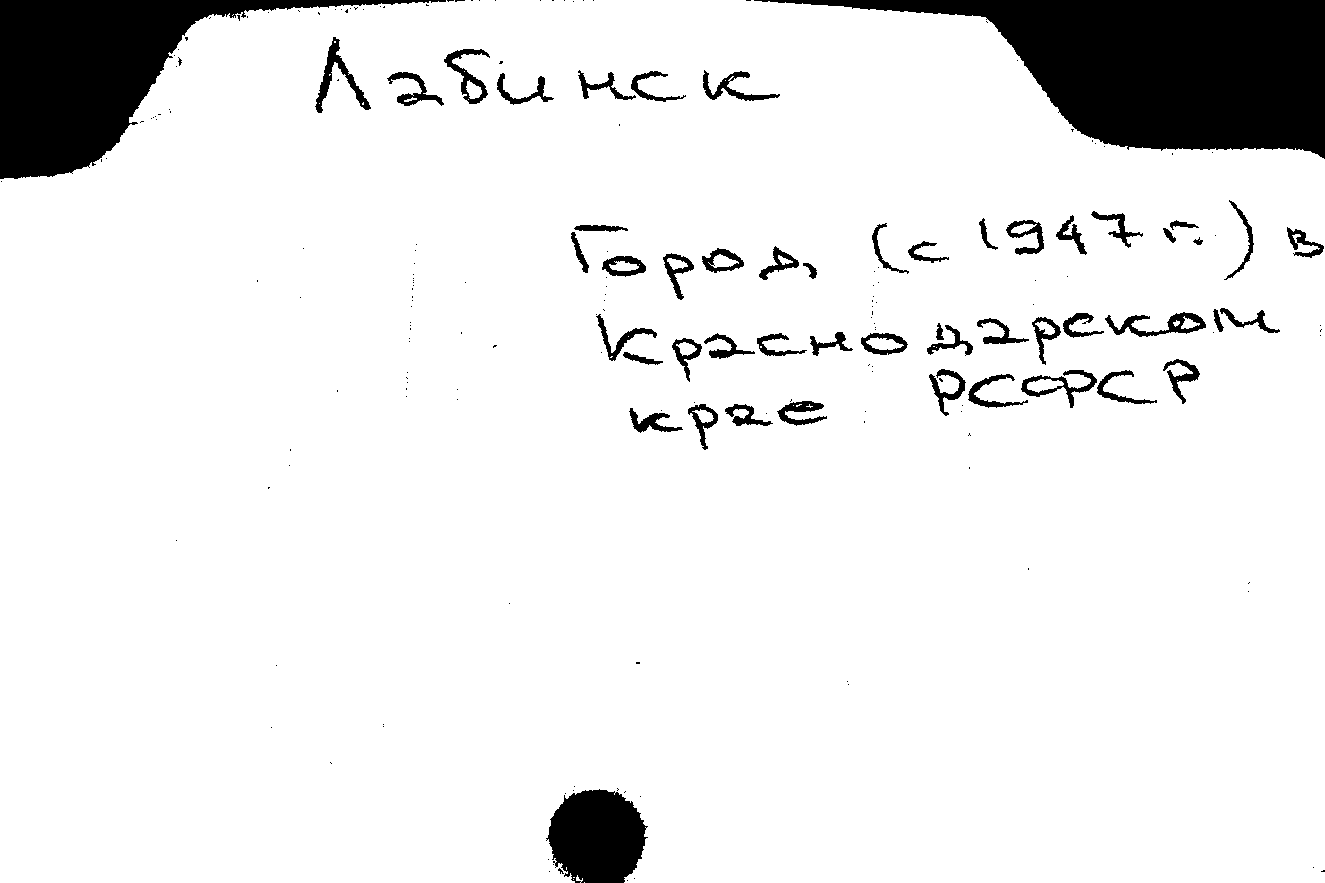 Лабинск
Город (с 1947 г.) в
Краснодарском
крае РСФСР